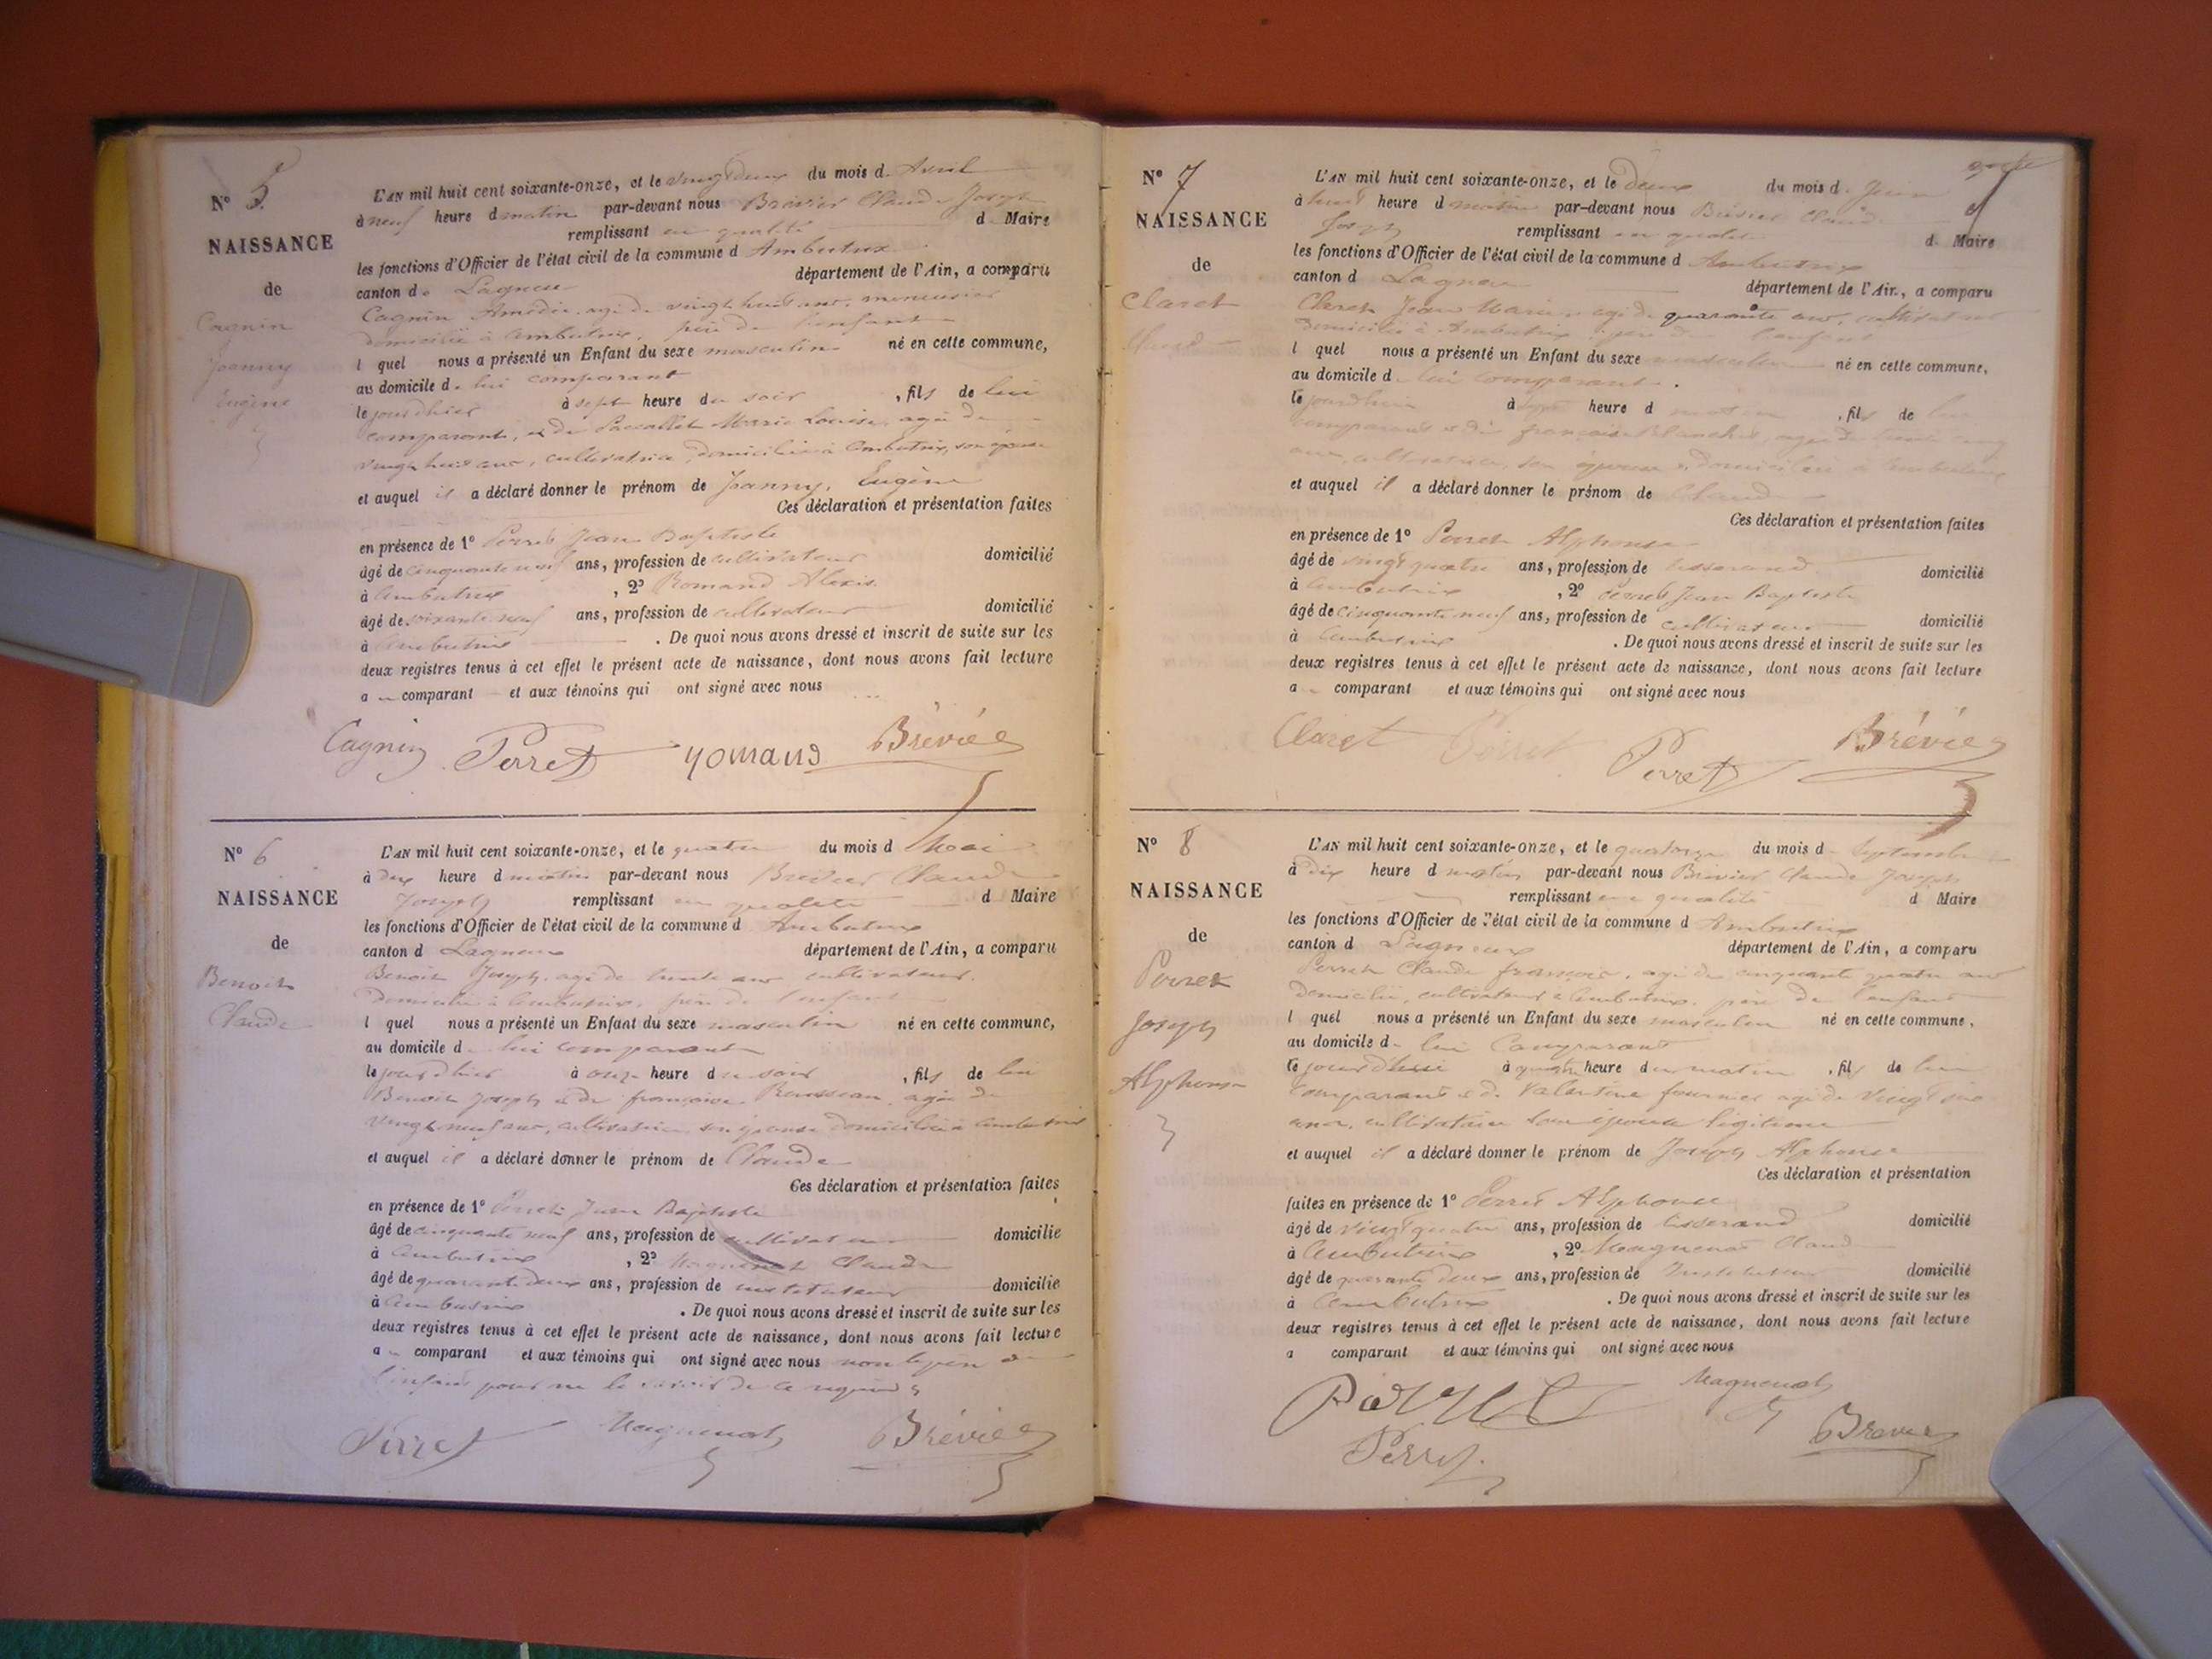 N° 5
NAISSANCE
de
Cagnin
Joanny
Eugène
L'AN mil huit cent soixante-onze, et le vingt deux du mois d Avril
à neuf heure d matin par-devant nous Brévier Claude Joseph
remplissant en qualité d Maire
les fonctions d'Officier de l'état civil de la commune d Ambutrix
canton de Lagnieu département de l'Ain, a comparu
Cagnin Amédée, agé de vingt huit ans, menuisier
domicilié à Ambutrix, père de l'enfant
l quel nous a présenté un Enfant du sexe masculin né en cette commune,
au domicile de lui comparant
le jour d'hier à sept heure du soir, fils de lui
comparant, et de Marie Louise, agée de
vingt huit ans, cultivatrice, domiciliée à Ambutrix, son épouse
et auquel il a déclaré donner le prénom de Joanny, Eugène
Ces déclaration et présentation faites
en présence de 1° Perret Jean Baptiste
âgé de cinquante neuf ans, profession de cultivateur domicilié
à Ambutrix, 2° Romand Alexis
âgé de soixante neuf ans, profession de cultivateur domicilié
à Ambutrix. De quoi nous avons dressé et inscrit de suite sur les
deux registres tenus à cet effet le présent acte de naissance, dont nous avons fait lecture
au comparant et aux témoins qui ont signé avec nous
Cagnin Perret romand Brévier
N° 6
NAISSANCE
de
Benoit
Claude
L'AN mil huit cent soixante-onze, et le quatre du mois d Mai
à dix heure d matin par-devant nous Brévier Claude
Joseph remplissant en qualité d Maire
les fonctions d'Officier de l'état civil de la commune d Ambutrix
canton d Lagnieu département de l'Ain, a comparu
Benoit Joseph, agé de trente ans cultivateur,
domicilié à Ambutrix, père de l'enfant
l quel nous a présenté un Enfant du sexe masculin né en cette commune,
au domicile d lui comparant
le jour d'hier à onze heure du soir, fils de lui
Benoit Joseph et de françoise Rousseau, agée de
vingt neuf ans, cultivatrice, son épouse domiciliée à Ambutrix
et auquel il a déclaré donner le prénom de Claude
Ces déclaration et présentation faites
en présence de 1° Perret Jean Baptiste
âgé de cinquante neuf ans, profession de cultivateur domicilié
à Ambutrix, 2° Magnenot Claude
âgé de quarante deux ans, profession de instituteur domicilié
à Ambutrix. De quoi nous avons dressé et inscrit de suite sur les
deux registres tenus à cet effet le présent acte de naissance, dont nous avons fait lecture
au comparant et aux témoins qui ont signé avec nous non le père de
l'enfant pour ne le savoir de ce requis
Perret Magnenot Brévier
N° 7
NAISSANCE
de
Claret
Claude
L'AN mil huit cent soixante-onze, et le deux du mois d Juin
à huit heure d matin par-devant nous Brévier Claude
Joseph remplissant en qualité d Maire
les fonctions d'Officier de l'état civil de la commune d Ambutrix
canton d Lagnieu département de l'Ain, a comparu
Claret Jean Marie, agé de quarante ans, cultivateur
domicilié à Ambutrix père de l'enfant
l quel nous a présenté un Enfant du sexe masculin né en cette commune,
au domicile d lui comparant.
le jourd'hui à sept heure d matin, fils de lui
comparant et de françoise Blanchet, agée de trente cinq
ans, cultivatrice, son épouse domiciliée à Ambutrix
et auquel il a déclaré donner le prénom de Claude
Ces déclaration et présentation faites
en présence de 1° Perret Alphonse
âgé de vingt quatre ans, profession de tisserand domicilié
à Ambutrix, 2° Perret Jean Baptiste
âgé de cinquante neuf ans, profession de cultivateur domicilié
à Ambutrix. De quoi nous avons dressé et inscrit de suite sur les
deux registres tenus à cet effet le présent acte de naissance, dont nous avons fait lecture
au comparant et aux témoins qui ont signé avec nous
Claret Perret Perret Brévier
N° 8
NAISSANCE
de
Perret
Joseph
Alphonse
L'AN mil huit cent soixante-onze, et le quatorze du mois d Septembre
à dix heure d matin par-devant nous Brévier Claude Joseph
remplissant en qualité d Maire
les fonctions d'Officier de l'état civil de la commune d Ambutrix
canton d Lagnieux département de l'Ain, a comparu
Perret Claude françois, agé de cinquante quatre ans
domicilié, cultivateur à Ambutrix, père de l'enfant
l quel nous a présenté un Enfant du sexe masculin né en cette commune,
au domicile de lui Comparant
le jour d'hui à quatre heure du matin, fils de lui
comparant et de Valentine fournier agée de vingt
ans, cultivatrice son épouse légitime
et auquel il a déclaré donner le prénom de Joseph Alphonse
Ces déclaration et présentation
faites en présence de 1° Perret Alphonse
âgé de vingt quatre ans, profession de tisserand domicilié
à Ambutrix, 2° Magnenot Claude
âgé de quarante deux ans, profession de Instituteur domicilié
à Ambutrix. De quoi nous avons dressé et inscrit de suite sur les
deux registres tenus à cet effet le présent acte de naissance, dont nous avons fait lecture
a comparant et aux témoins qui ont signé avec nous
Perret Magnenot
Perret Brévier